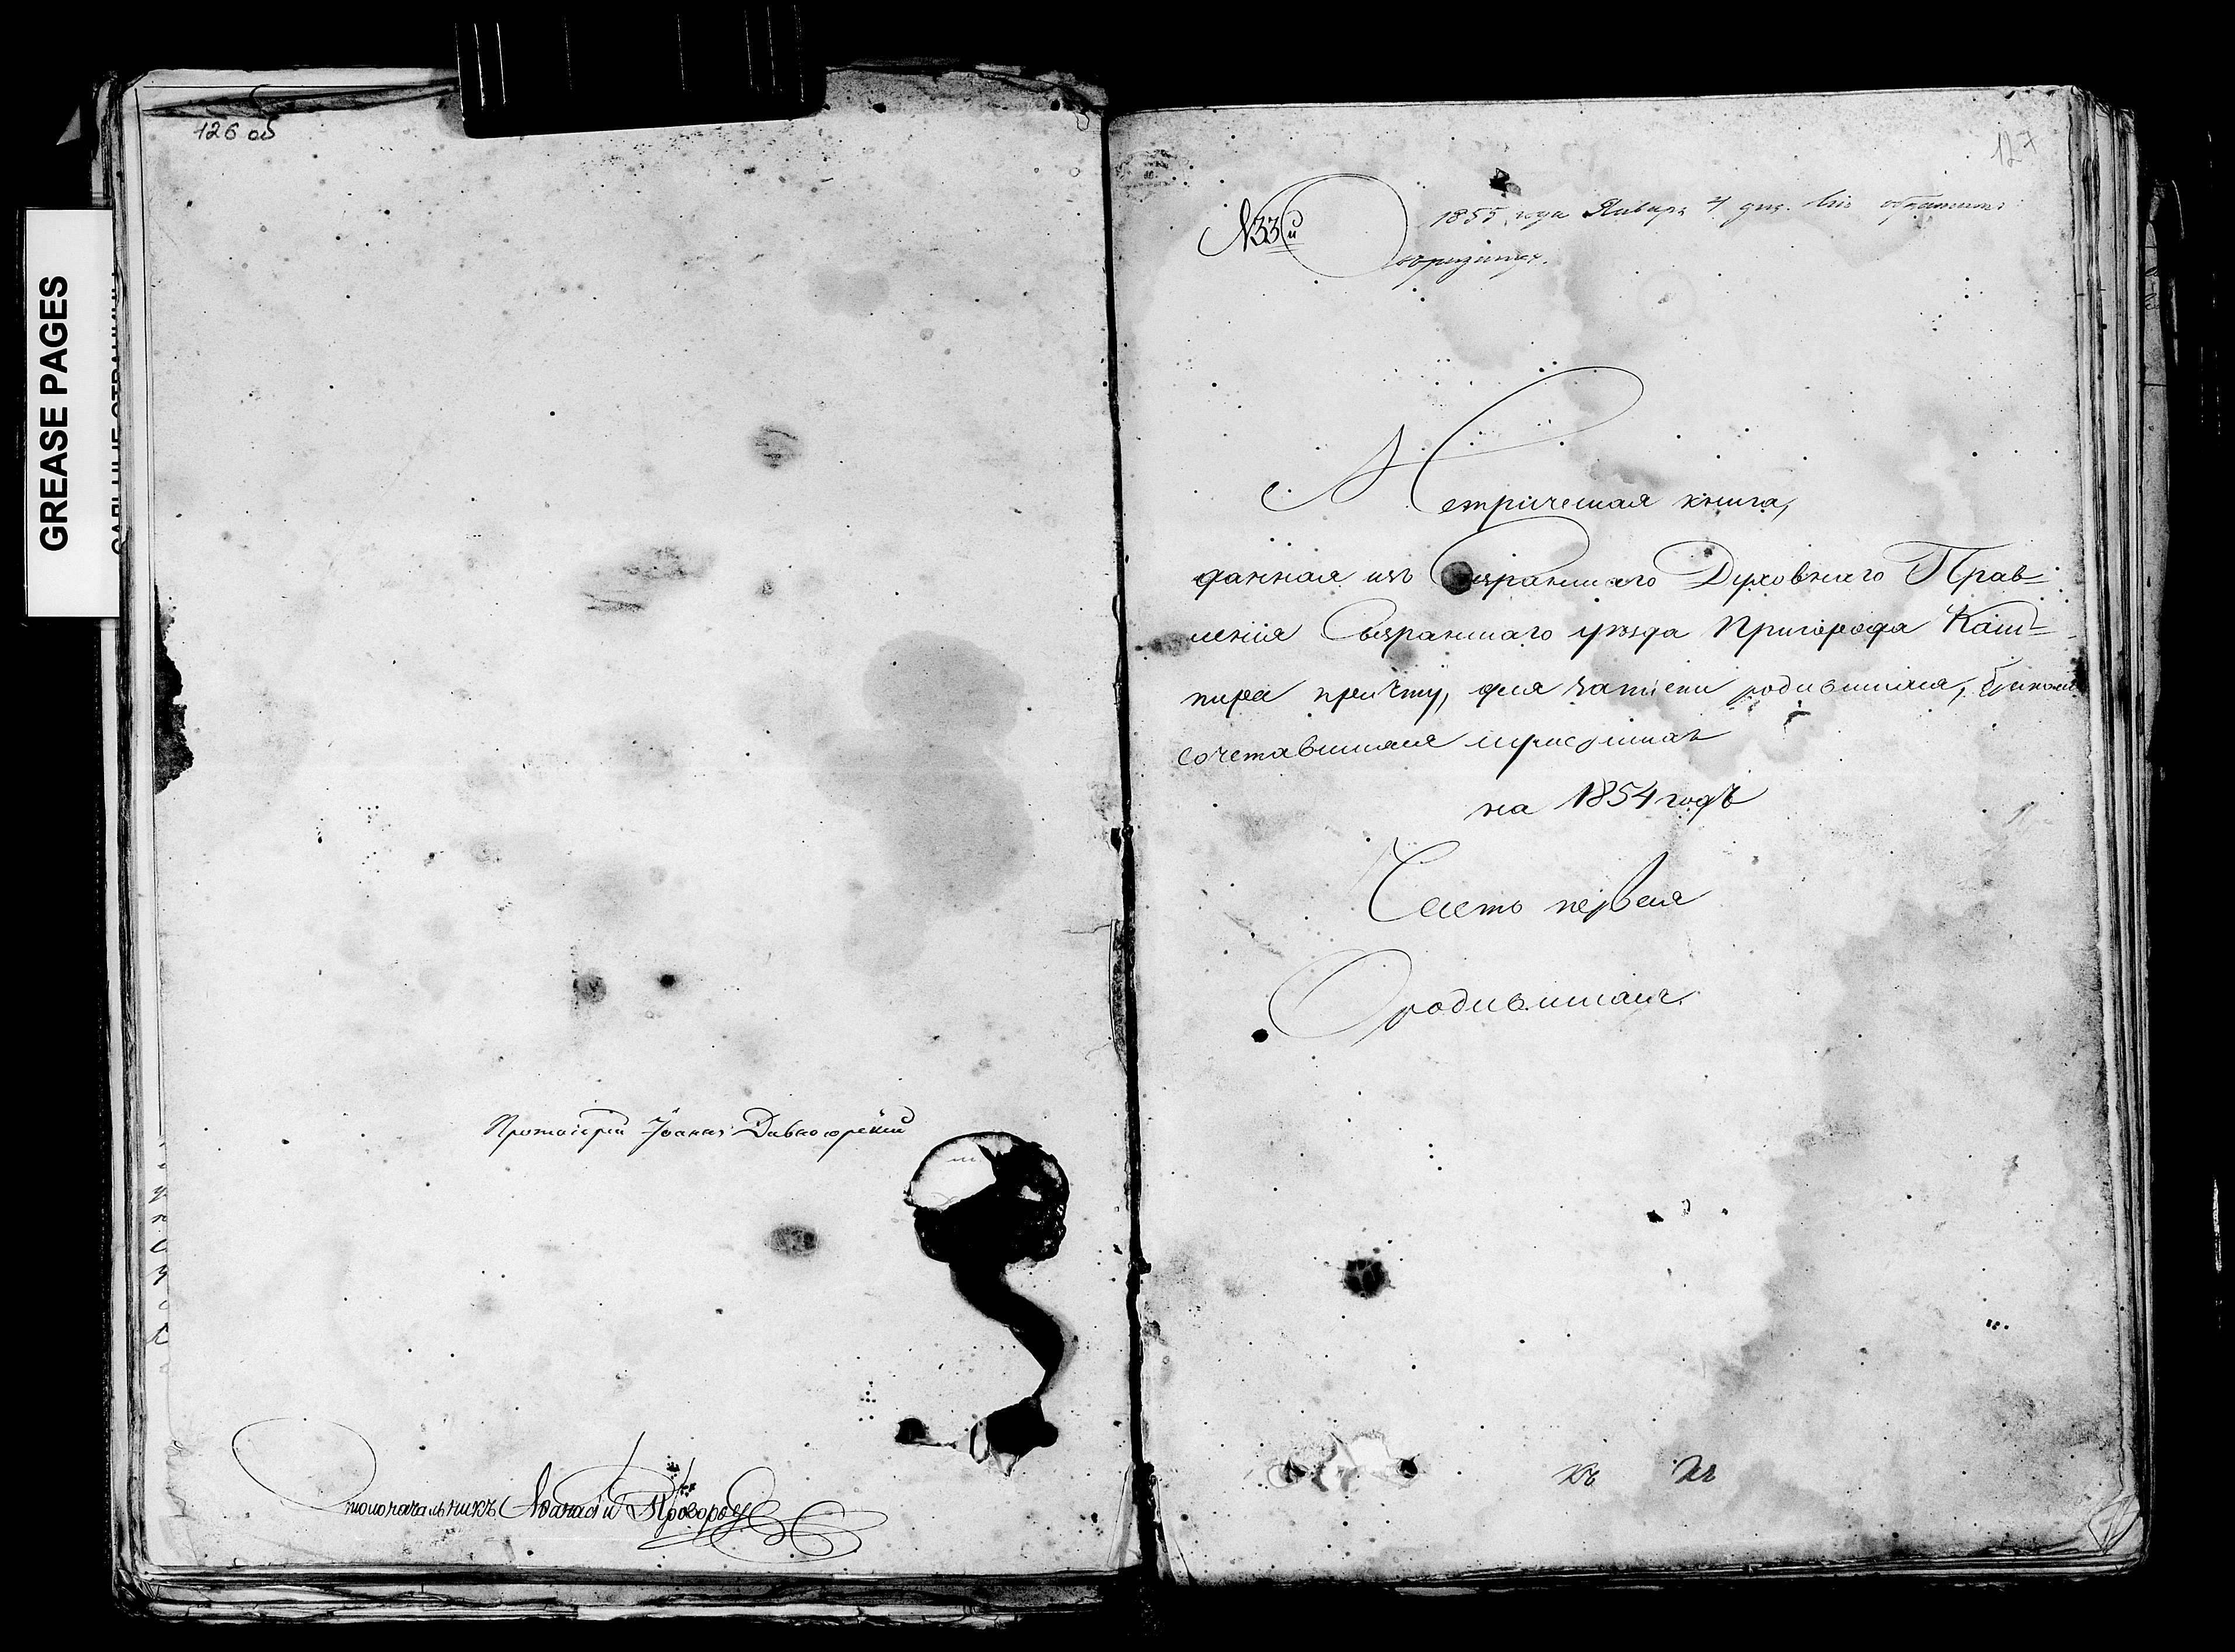 GREASE PAGES
САЛЬНЫЕ СТРАНИЦЫ
126 об
Протоіерей Іоаннъ
Столоначальникъ Аѳанасій
127
№33й
1855 года Января 4 дня.
Метрическая книга,
данная изъ Сызранскаго Духовнаго Прав=
ленія Сызранскаго уѣзда Пригорода Каш=
пира причту, для записки родившихся, бракомъ
сочетавшихся и умершихъ
на 1854 годъ
Часть первая
О родившихся